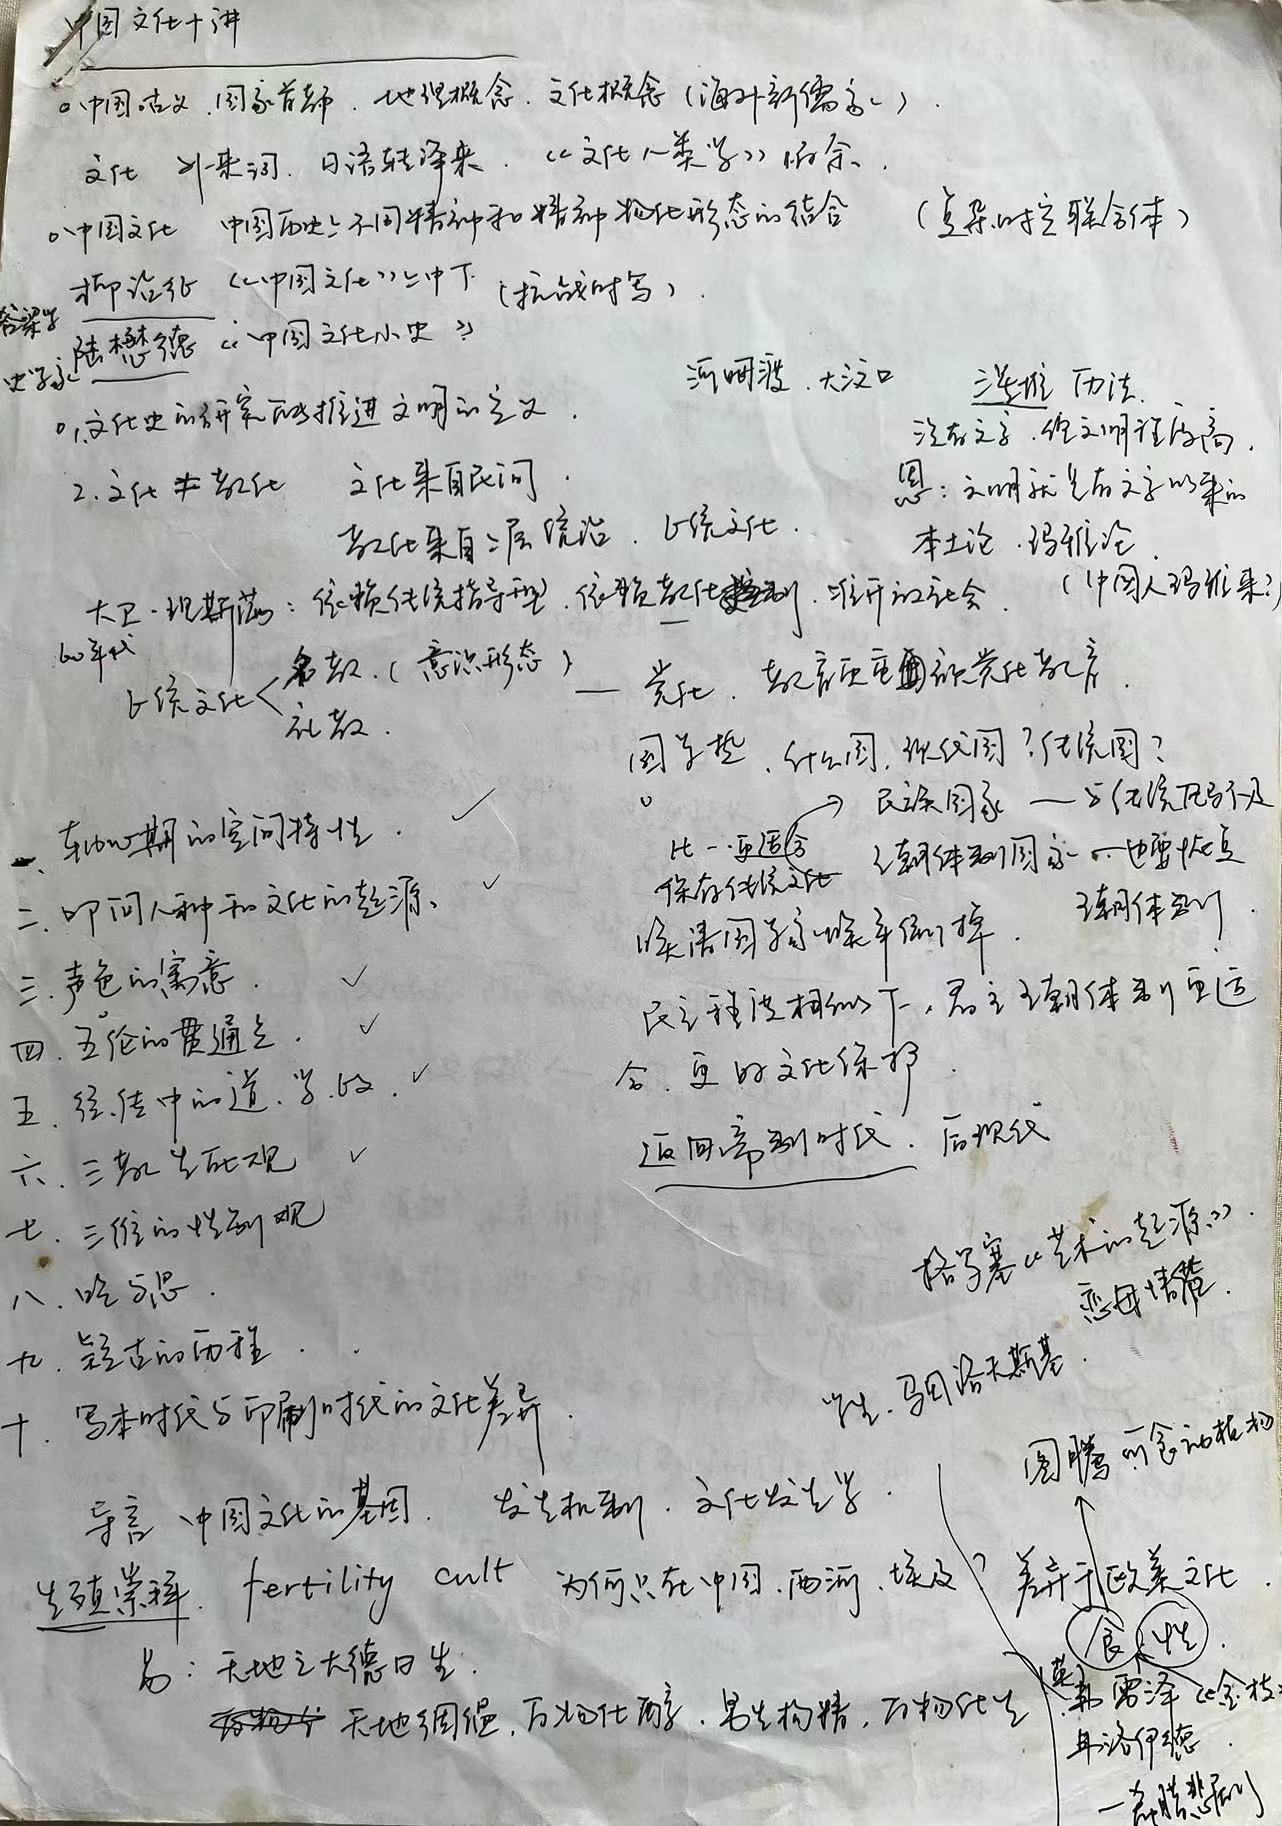 中国文化十讲
中国古义、国家首都、地理概念、文化概念（海外新儒家）
文化 外来词、日语转译来、《文化人类学》
中国文化 中国历史上不同精神和精神物化形态的结合
（复杂的时空联合体）
柳诒征《中国文化》上中下（抗战时写）
陆懋德《中国文化小史》
史学家
河姆渡、大汶口
三星堆 历法
1.文化史的研究 推进文明的定义
没有文字、但文明程度高
2.文化≠教化 文化来自民间
恩：文明就是有文字以来的
教化来自上层统治、正统文化
本土论、玛雅论
（中国人玛雅来？）
大卫·理斯曼：依赖传统指导型、依赖教化 、离开的社会
60年代
正统文化
名教（意识形态）
礼教
党化、教育 党化教育
国学热、什么国、现代国？传统国？
民族国家 — 与传统
比一更适合
保存传统文化
王朝体制国家 也要恢复
王朝体制
一、轴心期的空间特性
二、 人种和文化的起源
三、声色的寓意
四、五伦的贯通
五、经传中的道、学、政
六、三教生死观
七、三位的性别观
八、吃与思
九、疑古的历程
十、写本时代与印刷时代的文化差异
民主程度相似下，君主王朝体制更适
合、更 文化保护
返回帝制时代、后现代
格罗塞《艺术的起源》
恋母情结
学生、马林诺夫斯基
图腾 所食动植物
导言、中国文化的基因、发生机制、文化发生学
生殖崇拜 fertility cult 为何只在中国、两河、埃及？
差异于欧美文化
食 性
易：天地之大德曰生
天地絪缊，万物化醇，男女构精，万物化生
（英）弗雷泽《金枝》
弗洛伊德